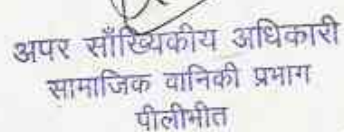 अपर साँख्यिकीय अधिकारी
सामाजिक वानिकी प्रभाग
पीलीभीत